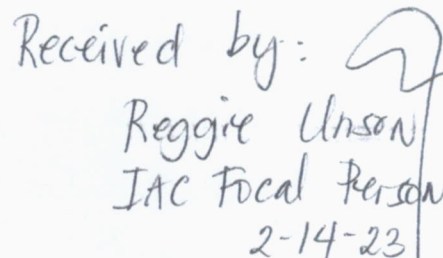 Received by:
Reggie Unson
IAC Focal Person
2-14-23